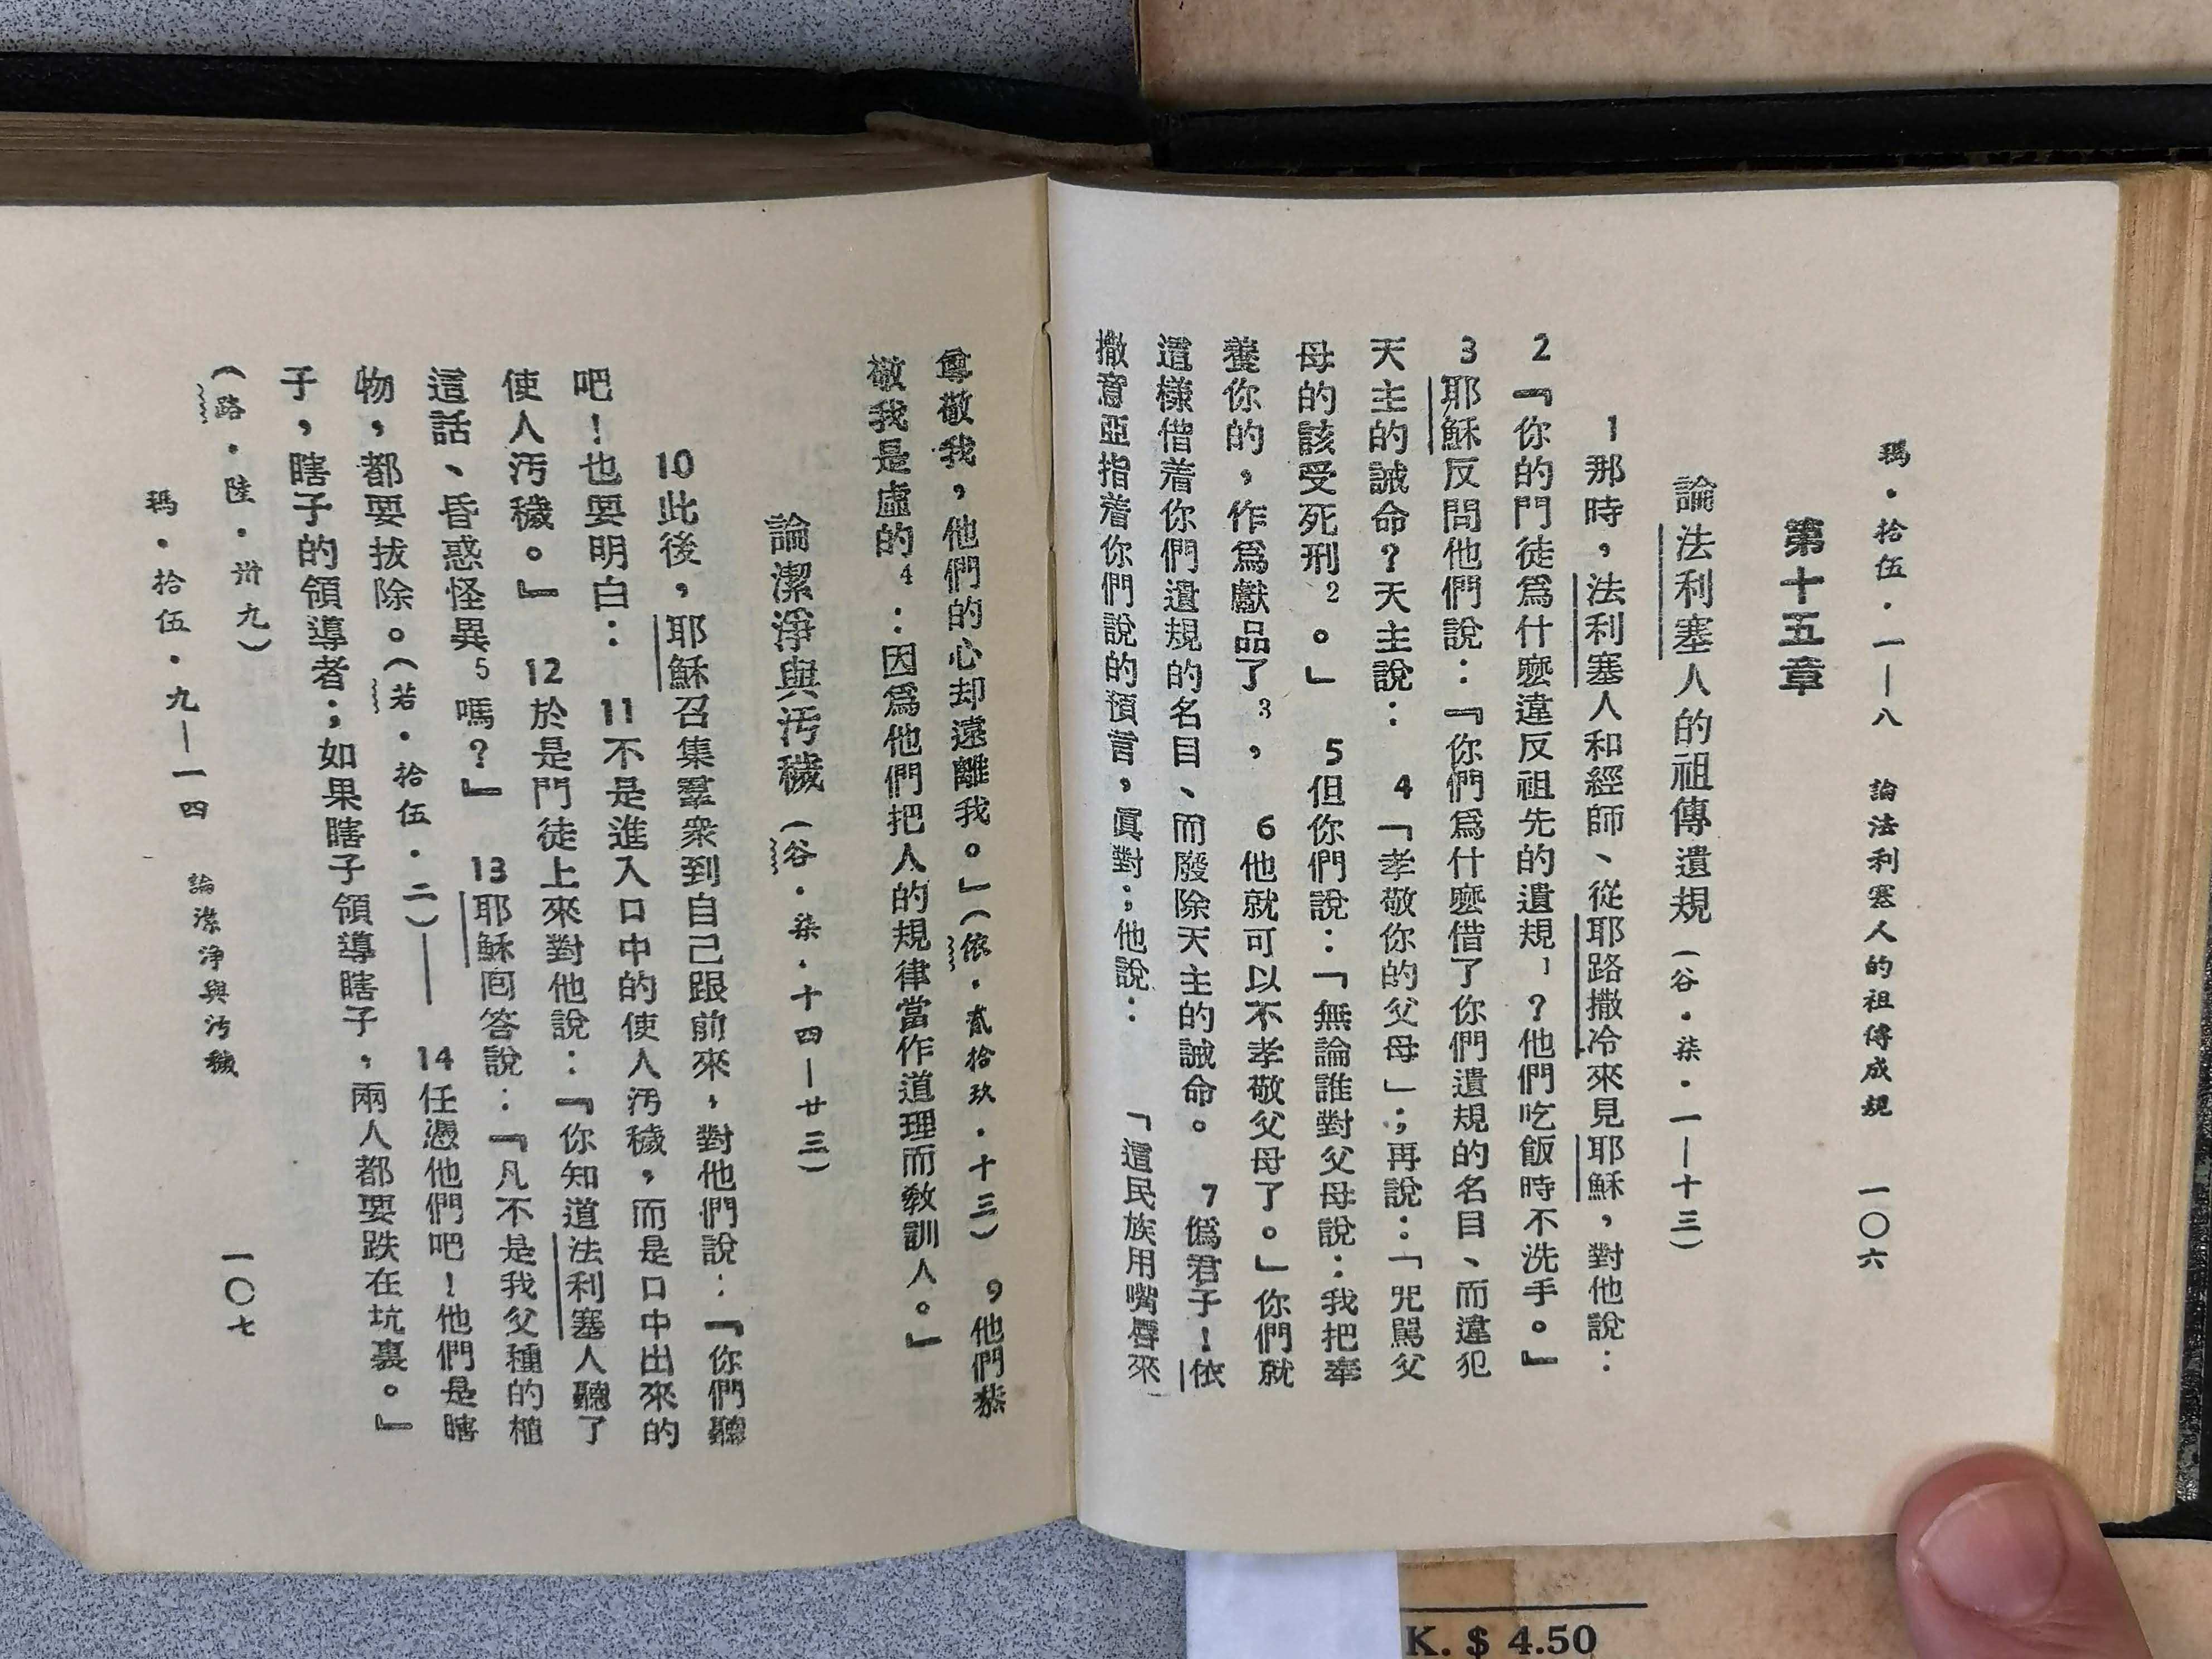 瑪．拾伍．一—八　論法利塞人的祖傳成規　一〇六
第十五章
論法利塞人的祖傳遺規（谷．柒．一—十三）
1那時，法利塞人和經師、從耶路撒冷來見耶穌，對他說：
2『你的門徒爲什麼違反祖先的遺規1？他們吃飯時不洗手。』
3耶穌反問他們說：『你們爲什麼借了你們遺規的名目、而違犯
天主的誡命？天主說：　4「孝敬你的父母」；再說：「咒駡父
母的該受死刑2。」　5但你們說：「無論誰對父母說：我把奉
養你的，作爲獻品了3，　6他就可以不孝敬父母了。」你們就
這樣借着你們遺規的名目、而廢除天主的誡命。　7僞君子！依
撒意亞指着你們說的預言，眞對；他說：　「這民族用嘴唇來
尊敬我，他們的心却遠離我。」（依．貳拾玖．十三）　9他們恭
敬我是虛的4：因爲他們把人的規律當作道理而敎訓人。』
論潔淨與汚穢（谷．柒．十四—廿三）
10此後，耶穌召集羣衆到自己跟前來，對他們說：『你們聽
吧！也要明白：　11不是進入口中的使人汚穢，而是口中出來的
使人汚穢。』　12於是門徒上來對他說：『你知道法利塞人聽了
這話、昏惑怪異5嗎？』　13耶穌囘答說：『凡不是我父種的植
物，都要拔除。（若．拾伍．二）——　14任憑他們吧！他們是瞎
子，瞎子的領導者；如果瞎子領導瞎子，兩人都要跌在坑裏。』
（路．陸．卅九）
瑪．拾伍．九—一四　論潔淨與汚穢　一〇七
K. $ 4.50